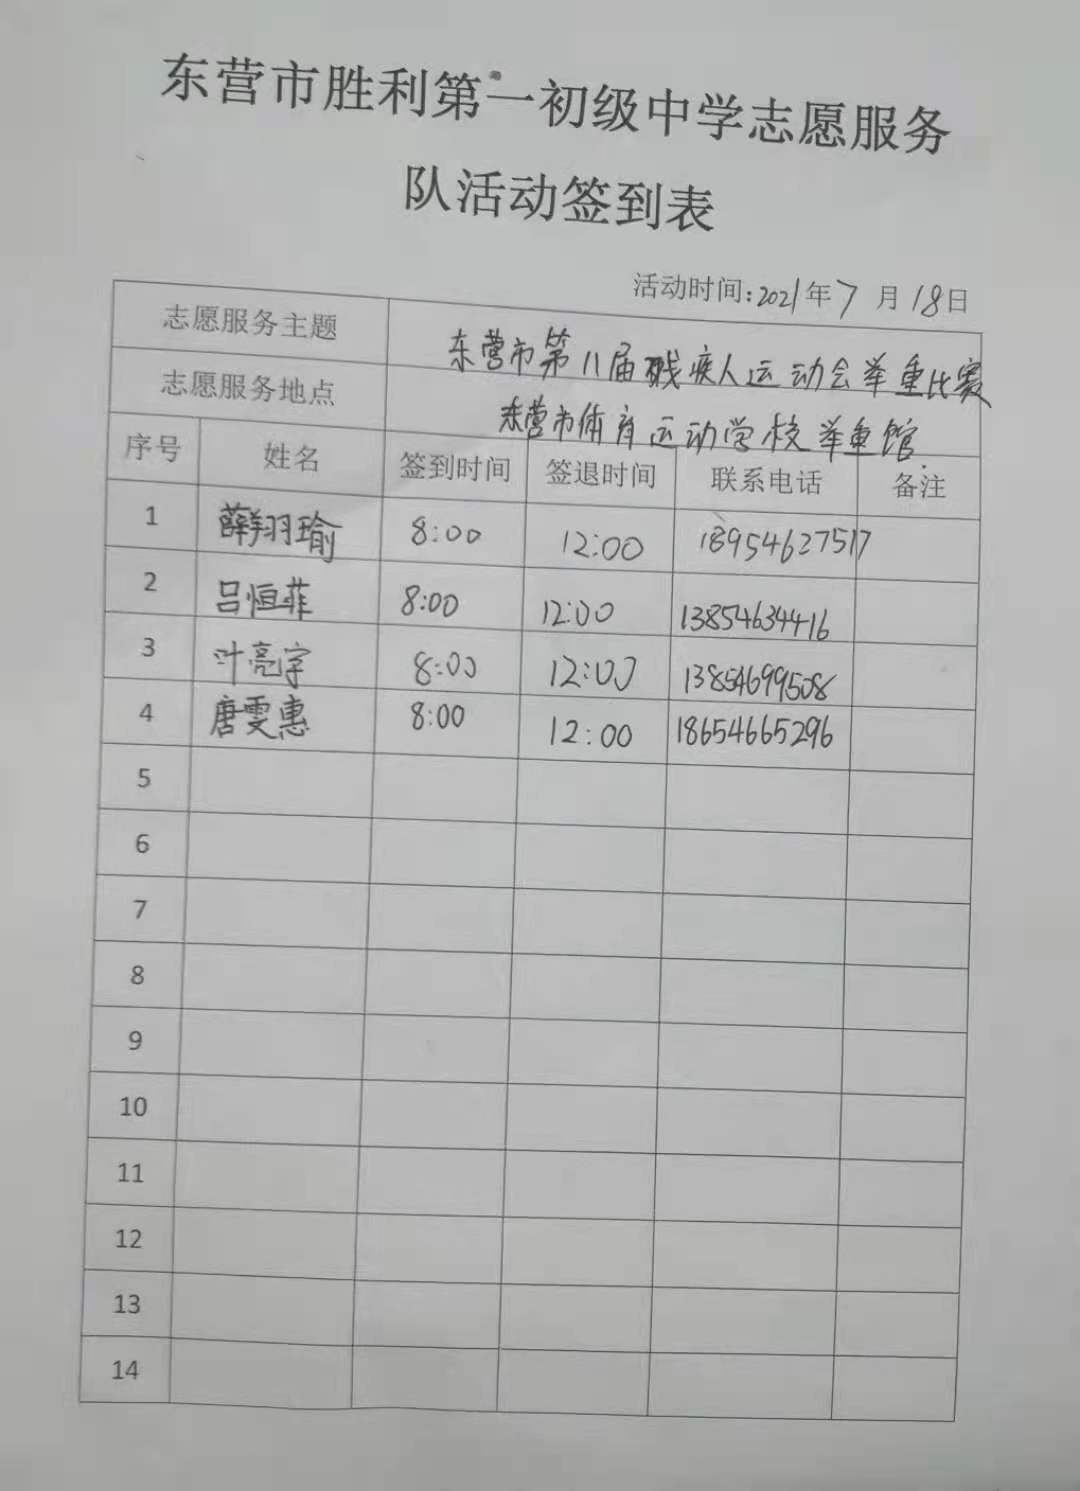 东营市胜利第一初级中学志愿服务
队活动签到表
活动时间:2021年7月18日
志愿服务主题 东营市第八届残疾人运动会举重比赛
志愿服务地点 东营市体育运动学校举重馆.
序号 姓名 签到时间 签退时间 联系电话 备注
1 薛翔瑜 8:00 12:00 18954627517
2 吕恒菲 8:00 12:00 13854634416
3 叶亮宇 8:00 12:00 13854699508
4 唐雯惠 8:00 12:00 18654665296
5
6
7
8
9
10
11
12
13
14